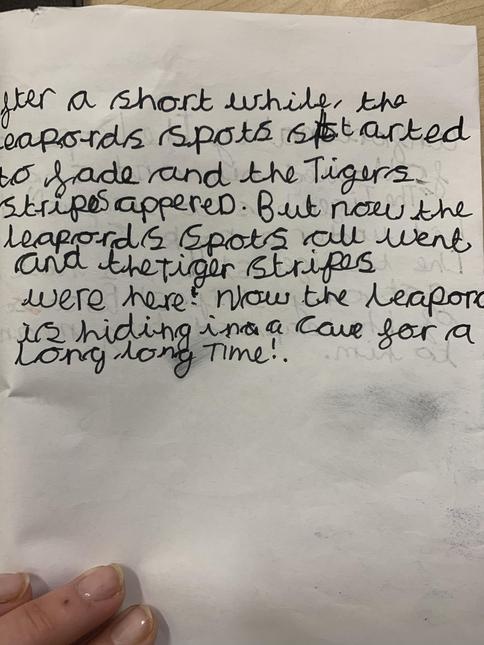 fter a short while, the
eapords spots started
to fade and the Tigers
stripes appereD. But now the
leapords spots all went
and the tiger stripes
were here! Now the leapord
is hiding in a cave for a
Long long Time!.
to him.